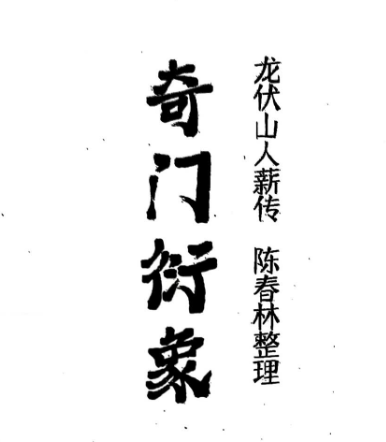 龙伏山人薪传 陈春林整理
奇门衍象